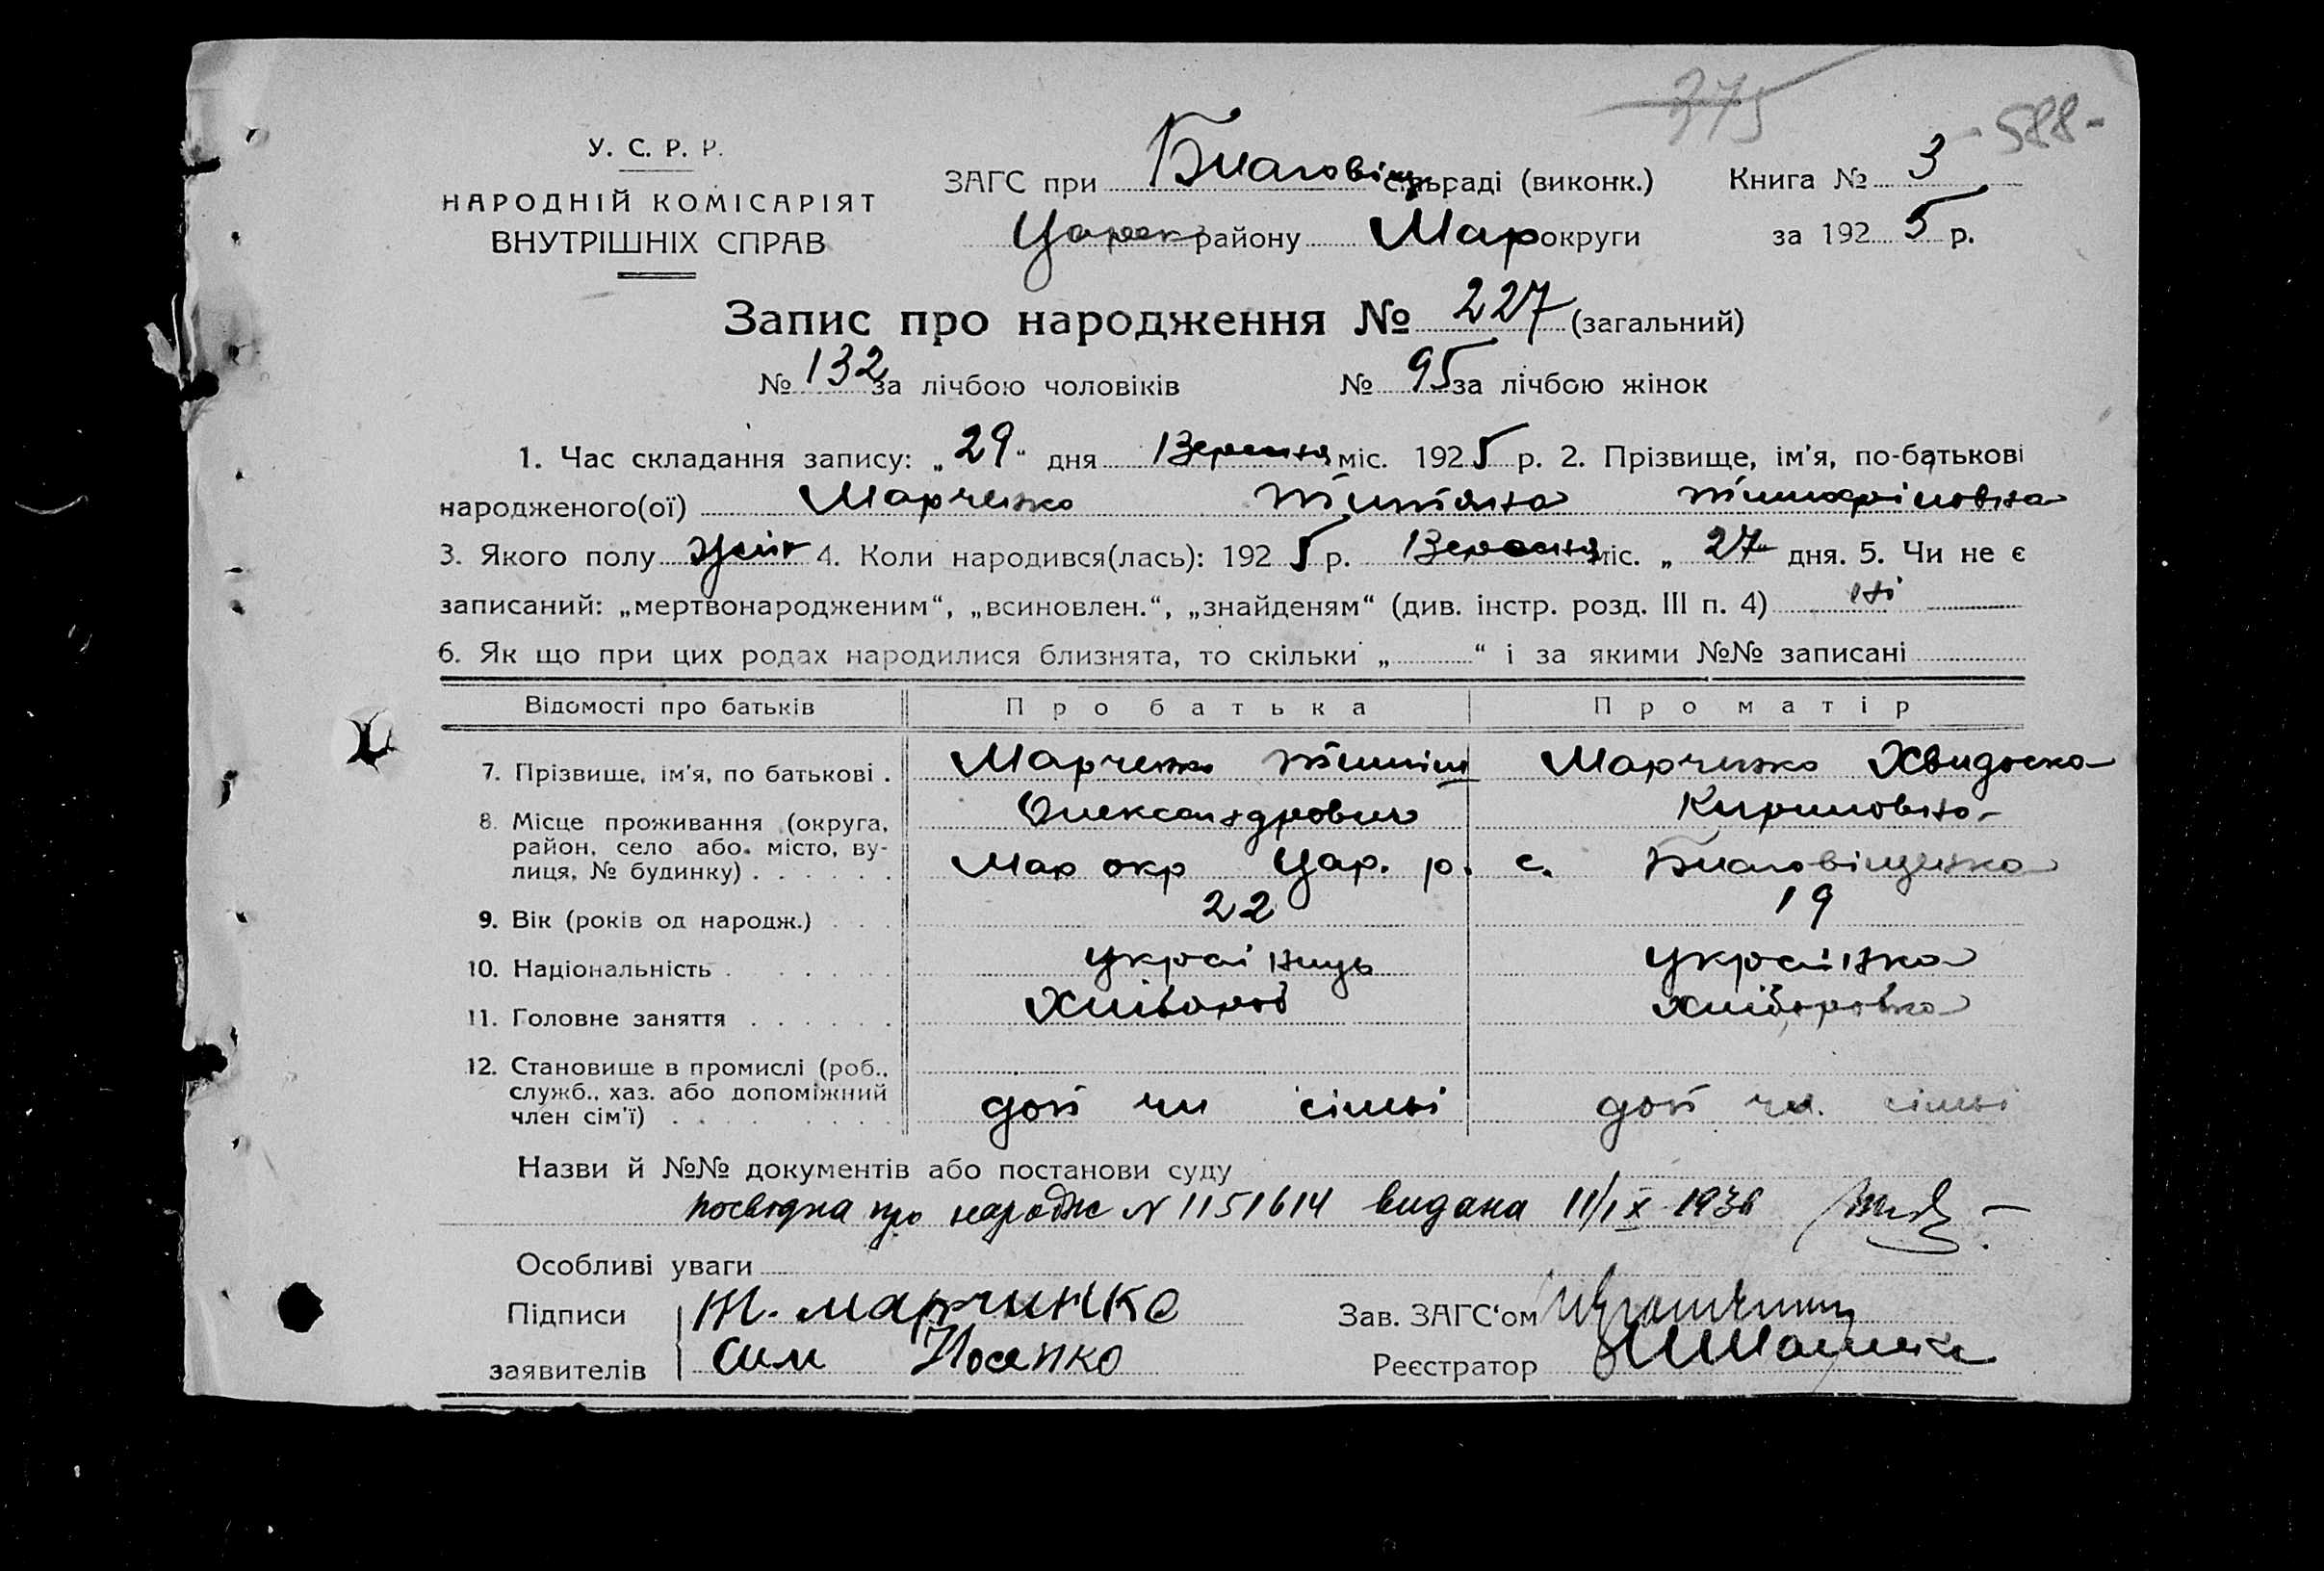 375
- 588 -
У. С. Р. Р.
НАРОДНІЙ КОМІСАРІЯТ
ВНУТРІШНІХ СПРАВ
ЗАГС при Благовіщ сільраді (виконк.) Книга № 3
Царек району Мар округи за 1925 р.
Запис про народження № 227 (загальний)
№ 132 за лічбою чоловіків № 95 за лічбою жінок
1. Час складання запису: „29“ дня Вересня міс. 1925 р. 2. Прізвище, ім'я, по-батькові
народженого(ої) Марченко Титяна
3. Якого полу жін 4. Коли народився(лась): 1925 р. Вересня міс. „27“ дня. 5. Чи не є
записаний: „мертвонародженим“, „всиновлен.“, „знайденям“ (див. інстр. розд. III п. 4) ні
6. Як що при цих родах народилися близнята, то скільки „ “ і за якими №№ записані
Відомості про батьків Про батька Про матір
7. Прізвище, ім'я, по батькові . Марченко Марченко Хвидоска
Олександрович Кириловна
8. Місце проживання (округа, район, село або місто, вулиця, № будинку) Мар окр Цар. р. с. Благовіщенка
9. Вік (років од народж.) 22 19
10. Національність украінець украінка
11. Головне заняття Хлібороб хліборобка
12. Становище в промислі (роб., служб., хаз. або допоміжний член сім'ї) доп чл сімьі доп чл. сімьі
Назви й №№ документів або постанови суду
посвідка про народж N 1151614 видана 11/IX 1936
Особливі уваги
Підписи Т. Марчинко Зав. ЗАГС'ом
заявителів Сим Носенко Реєстратор